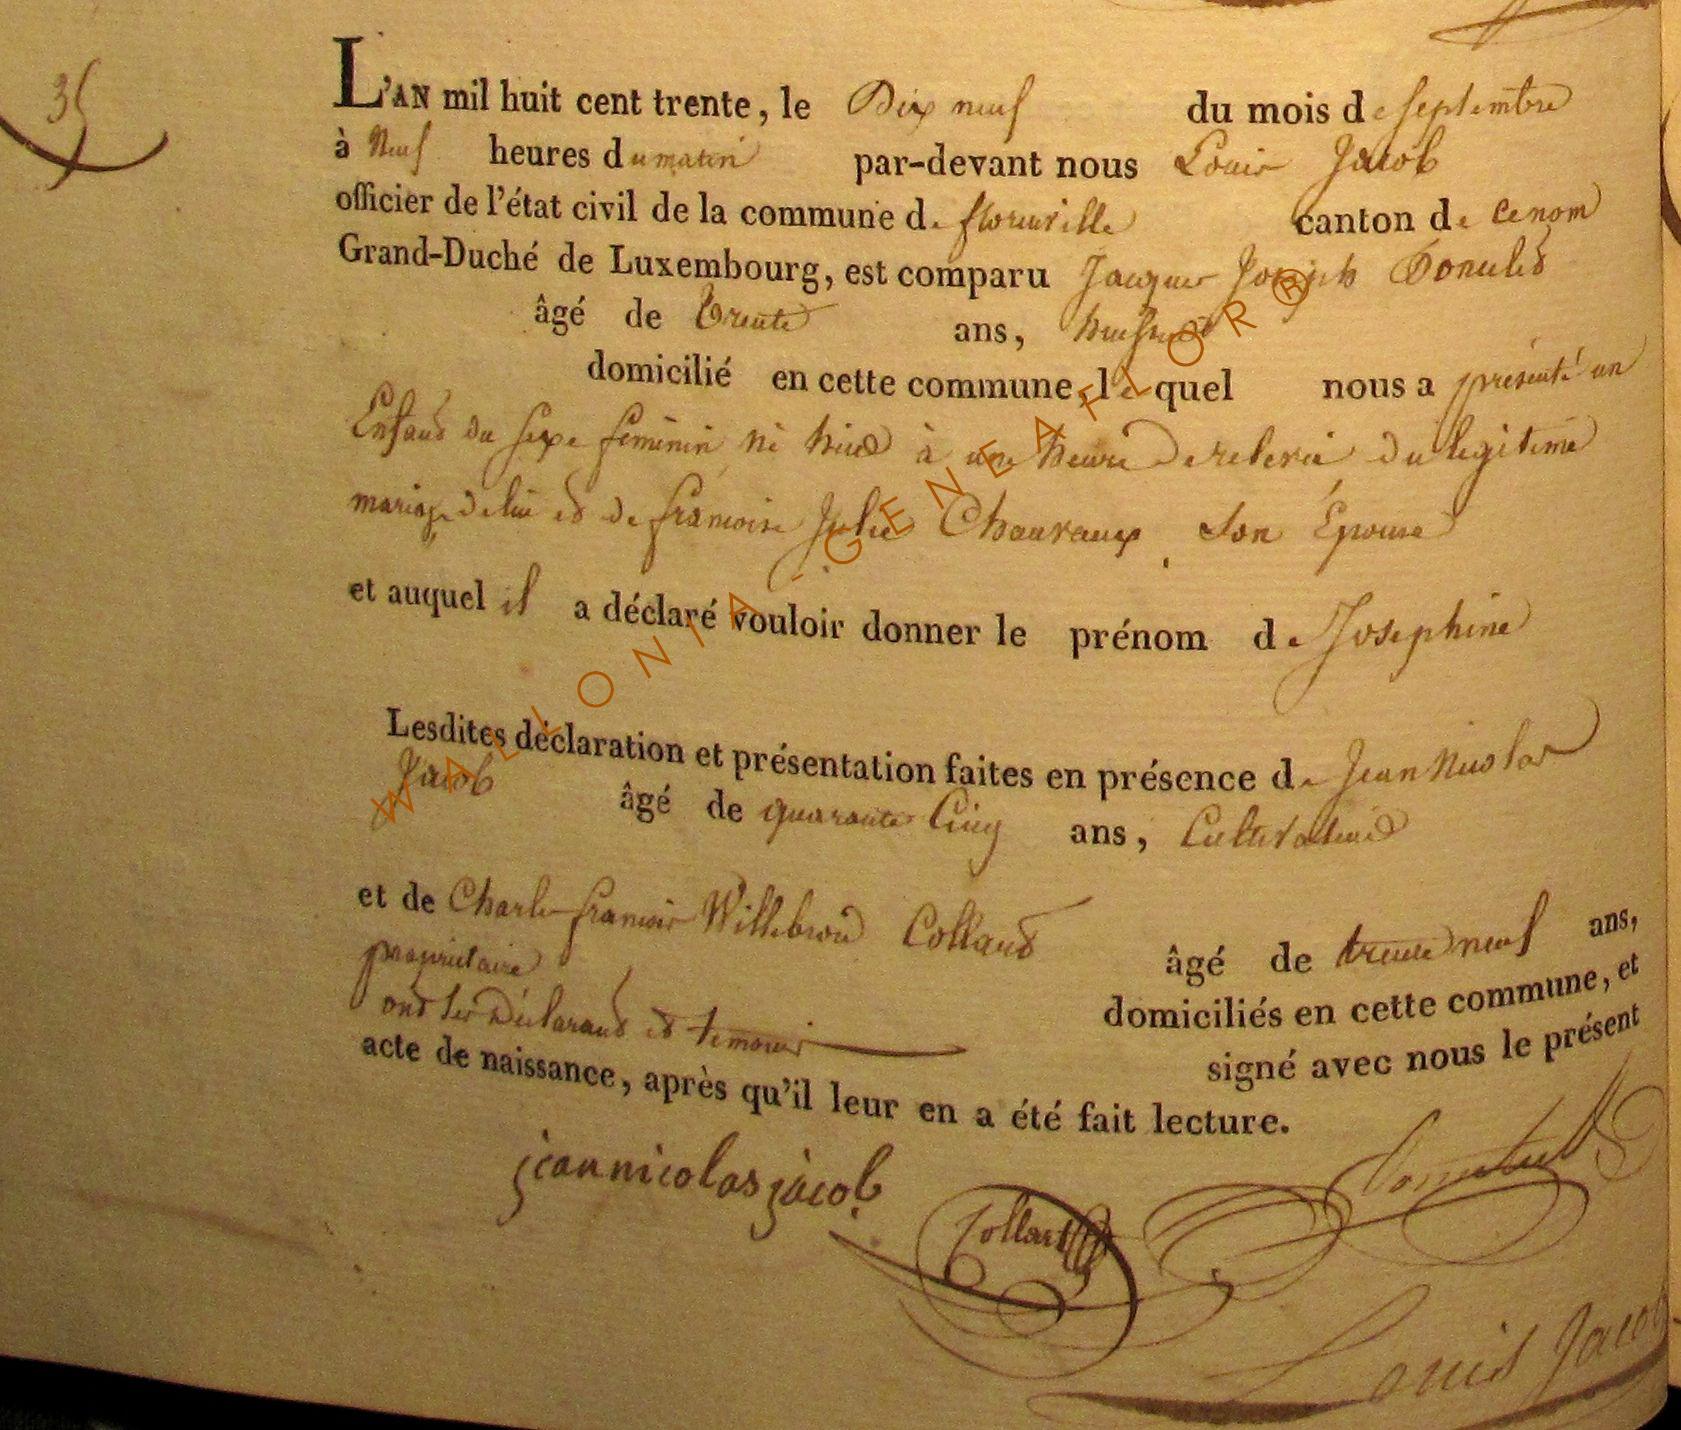 35
L'AN mil huit cent trente, le Dix neuf du mois de septembre
à Neuf heures du matin par-devant nous Louis Jacob
officier de l'état civil de la commune de florenville canton de
Grand-Duché de Luxembourg, est comparu Jacques Joseph
âgé de Trente ans, huissier
domicilié en cette commune, lequel nous a présenté un
Enfant du sexe feminin né hier à une heure de relevée du legitime
mariage de lui et de francoise Julie Chauvaux son Épouse
et auquel il a déclaré vouloir donner le prénom de Josephine
Lesdites déclaration et présentation faites en présence de Jean Nicolas
Jacob âgé de quarante Cinq ans, Cultivateur
et de Charles francois Willebrord Collard âgé de trente neuf ans,
propriétaire domiciliés en cette commune, et
ont les Déclarant et temoins signé avec nous le présent
acte de naissance, après qu'il leur en a été fait lecture.
jean nicolas jacob
Collard
Louis Jacob
WALLONIA-GENEAFLOR®